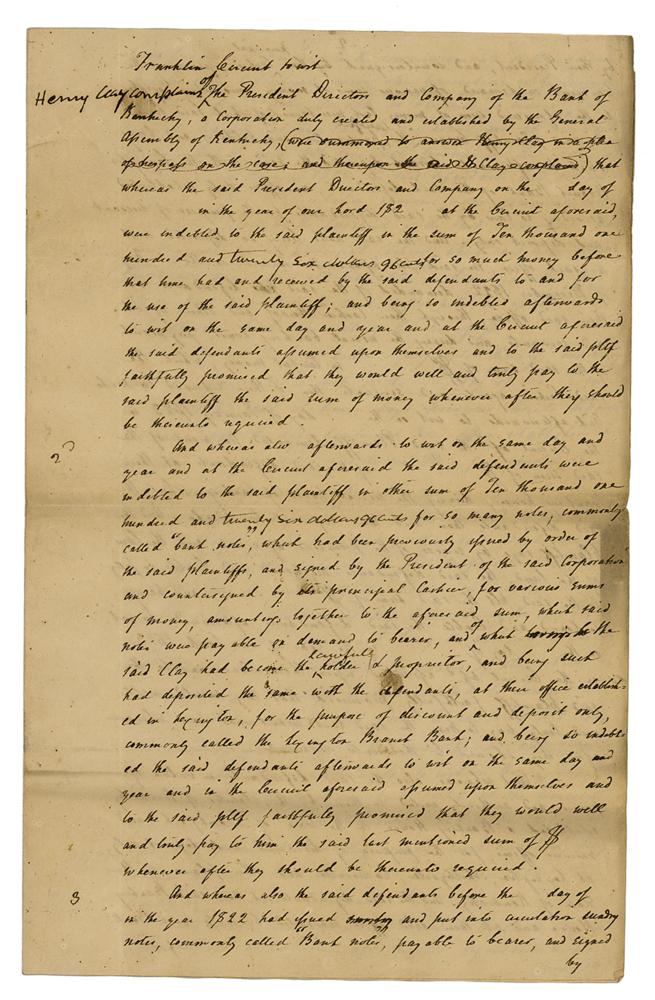 Franklin Circuit to wit
Henry Clay complains of The President Directors and Company of the Bank of
Kentucky, a Corporation duly created and established by the General
Assembly of Kentucky, (were summoned to answer Henry Clay in a plea
of trespass on the case; and thereupon the said H. Clay complains) that
whereas the said President Directors and Company on the day of
in the year of our Lord 182 at the Circuit aforesaid,
were indebted to the said plaintiff in the sum of Ten thousand one
hundred and twenty six dollars 96 cents for so much money before
that time had and received by the said defendants to and for
the use of the said plaintiff; and being so indebted afterwards
to wit on the same day and year and at the Circuit aforesaid
the said defendants assumed upon themselves and to the said pltf
faithfully promised that they would well and truly pay to the
said plaintiff the said sum of money whenever after they should
be thereunto required.
2 And whereas also afterwards to wit on the same day and
year and at the Circuit aforesaid the said defendants were
indebted to the said plaintiff in other sum of Ten thousand one
hundred and twenty six dollars 96 cents for so many notes, commonly
called "bank notes", which had been previously issued by order of
the said plaintiffs, and signed by the President of the said Corporation
and countersigned by its principal Cashier, for various sums
of money, amounting together to the aforesaid sum, which said
notes were payable on demand to bearer, and of which the
said Clay had become the lawful holder & proprietor, and being such
had deposited the same with the defendants, at their office establish-
ed in Lexington, for the purpose of discount and deposit only,
commonly called the Lexington Branch Bank; and being so indebt-
ed the said defendants afterwards to wit on the same day and
year and in the Circuit aforesaid assumed upon themselves and
to the said pltf faithfully promised that they would well
and truly pay to him the said last mentioned sum of $
whenever after they should be thereunto required.
3 And whereas also the said defendants before the day of
in the year 1822 had issued and put into circulation sundry
notes, commonly called "Bank notes", payable to bearer, and signed
by